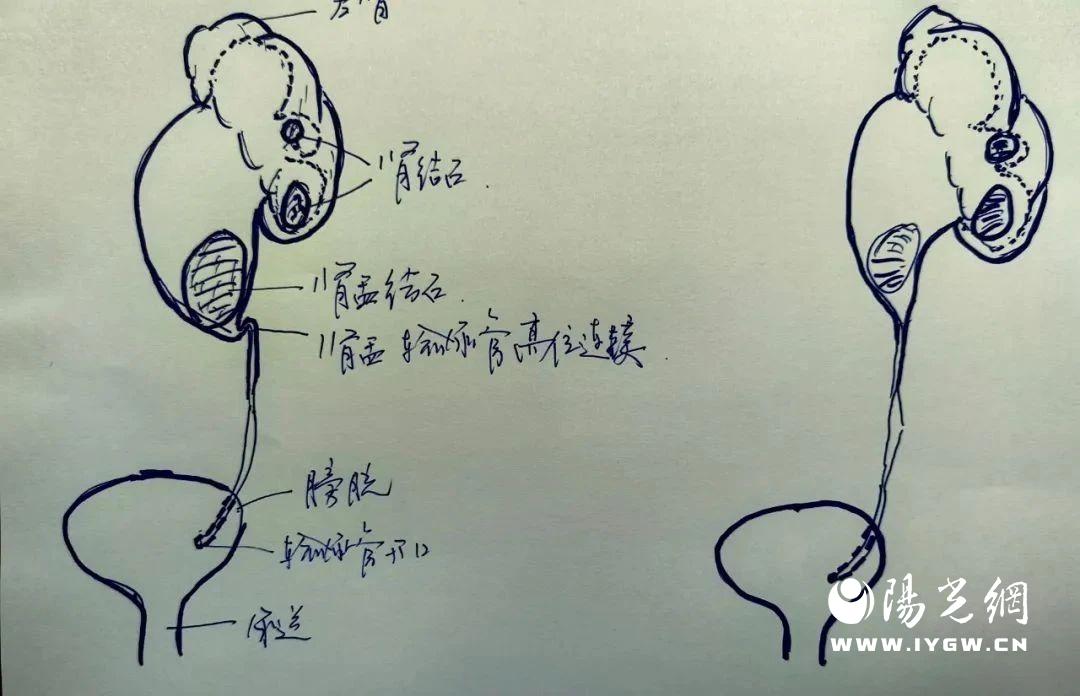 左肾
肾结石.
肾盂结石.
肾盂输尿管高位连接.
膀胱
输尿管开口
尿道
陽光網
WWW.IYGW.CN